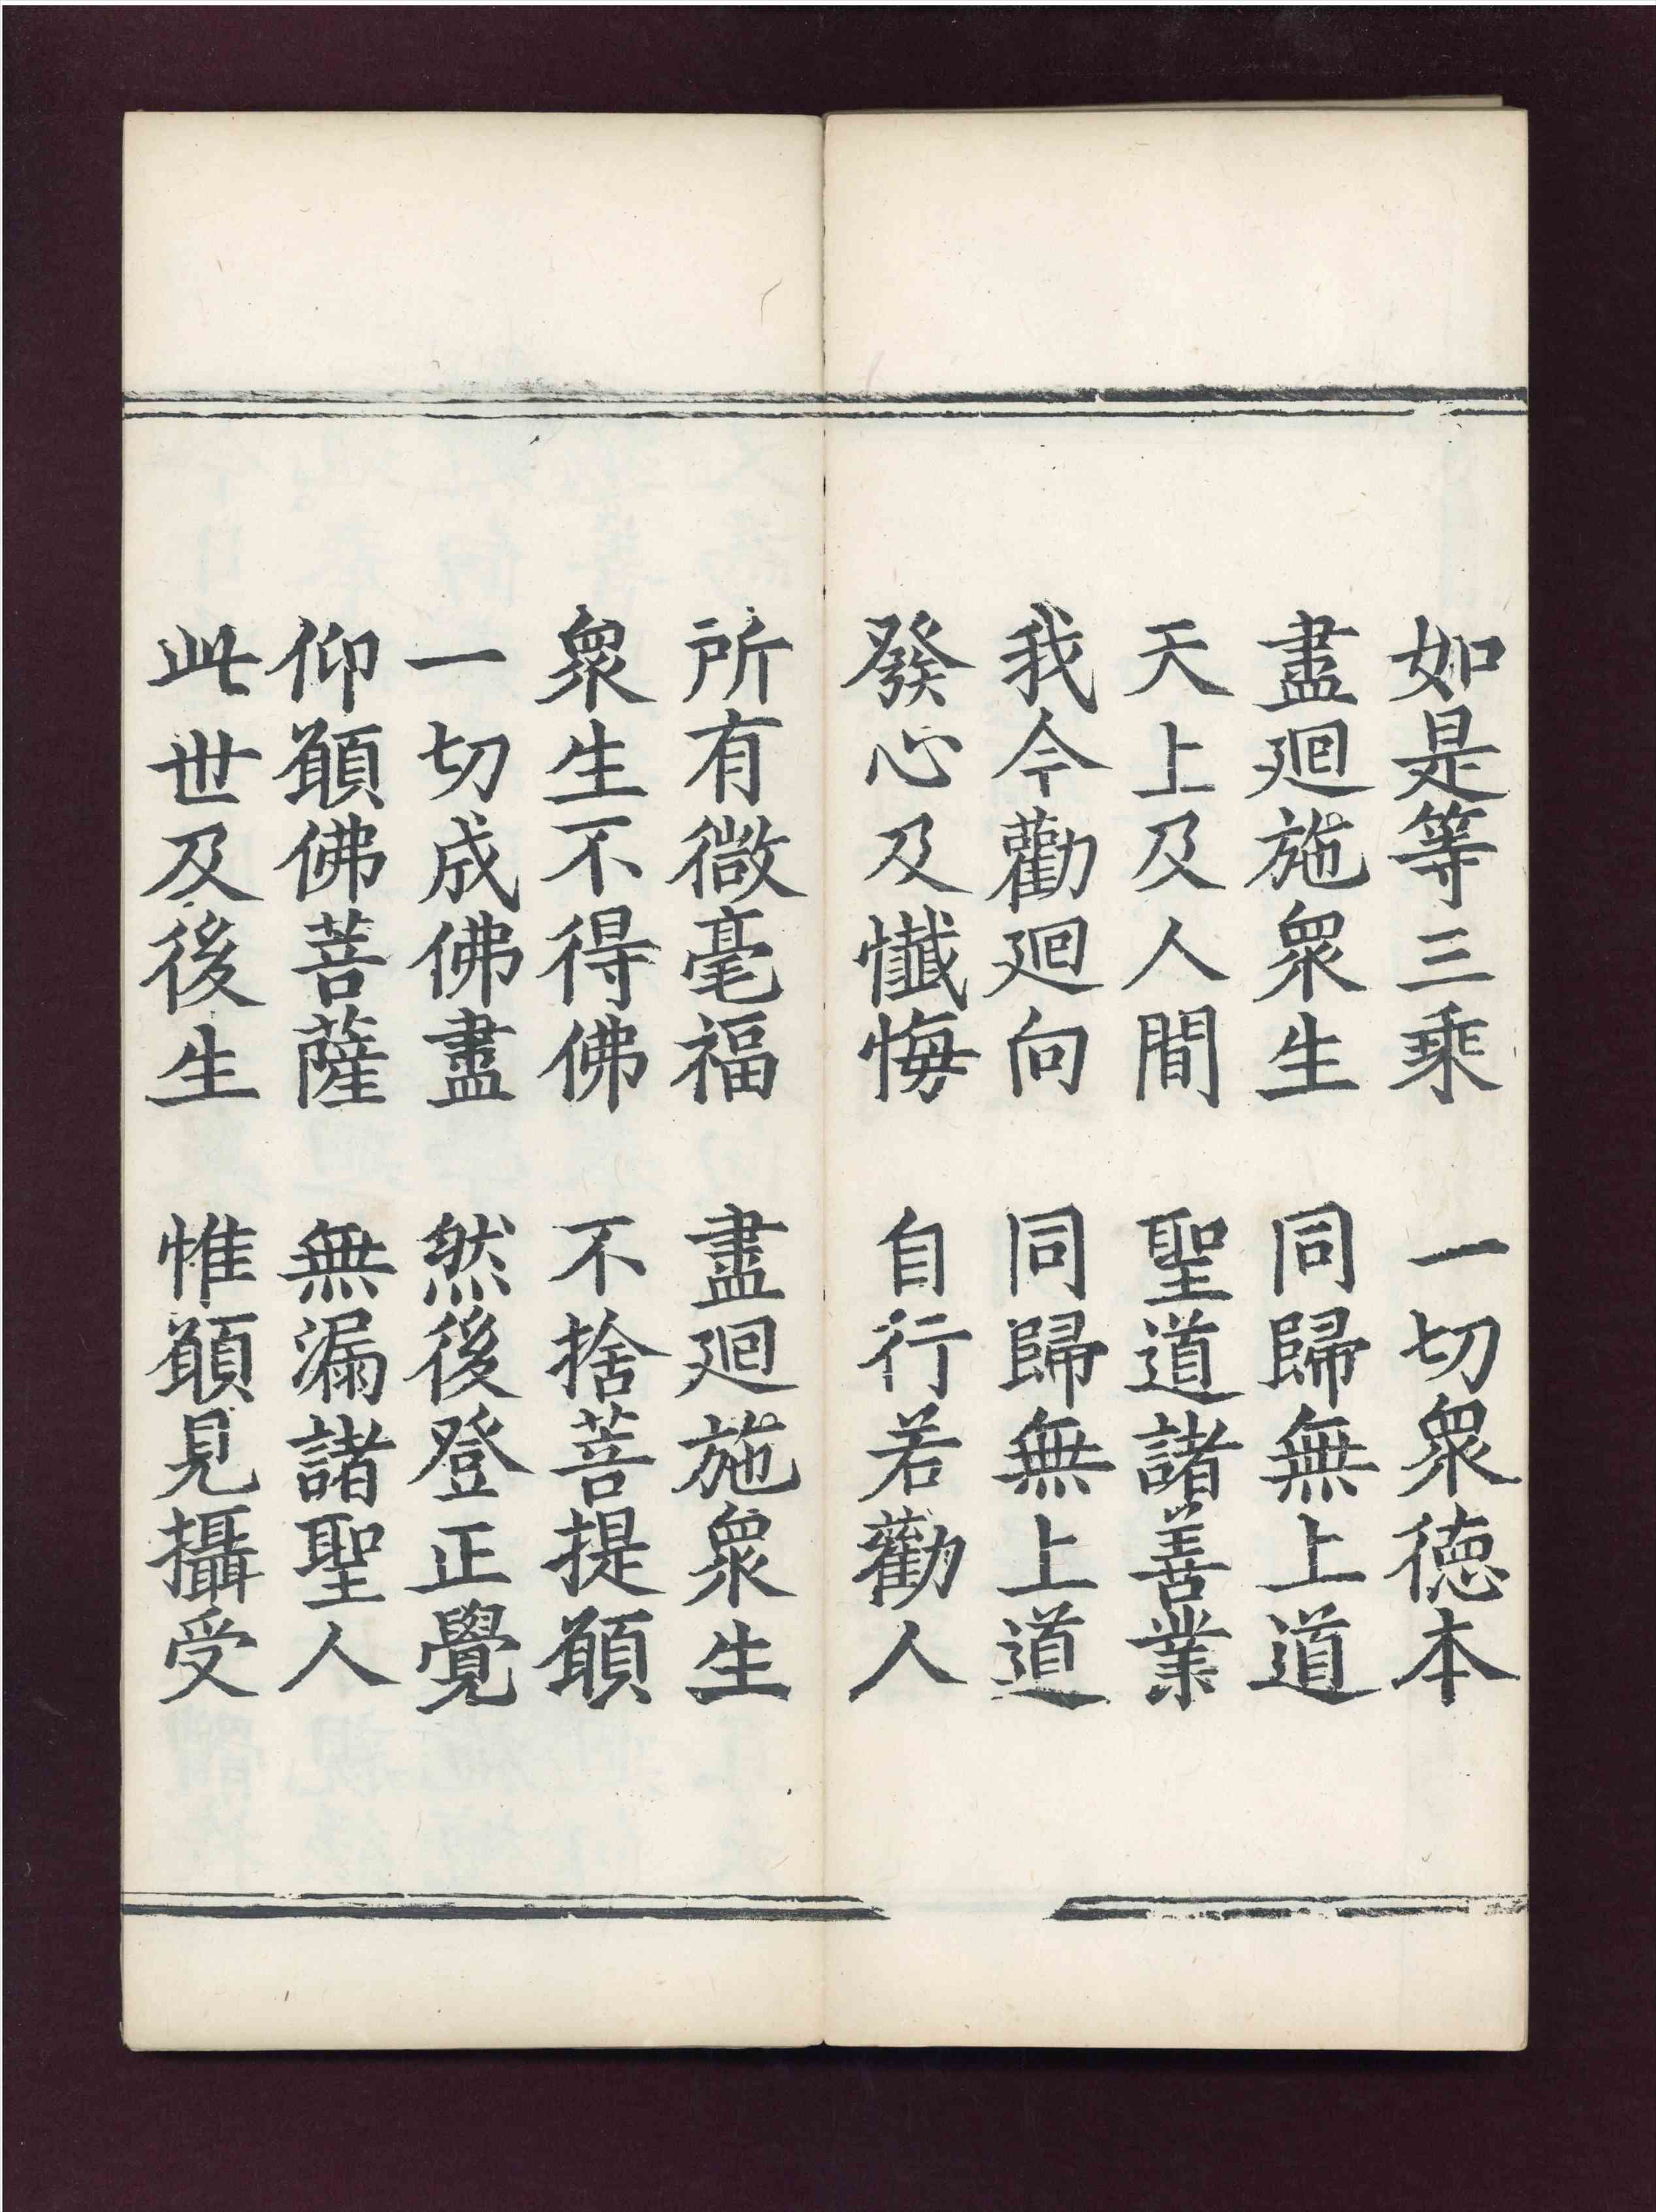 如是等三乘　一切衆德本
盡廻施衆生　同歸無上道
天上及人間　聖道諸善業
我今勸廻向　同歸無上道
發心及懺悔　自行若勸人
所有微毫福　盡廻施衆生
衆生不得佛　不捨菩提願
一切成佛盡　然後登正覺
仰願佛菩薩　無漏諸聖人
此世及後生　惟願見攝受